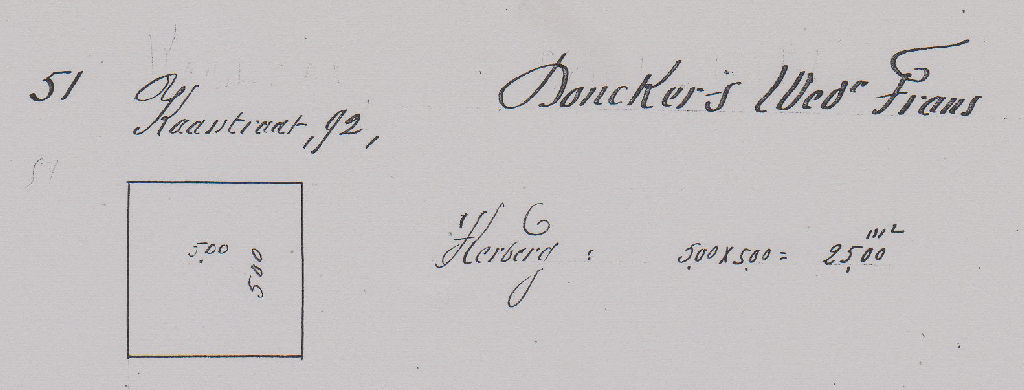 51
Kaastraat, 92,
Donckers Wede Frans
51
5,00
5,00
Herberg : 5,00 x 5,00 = 25,00 m²